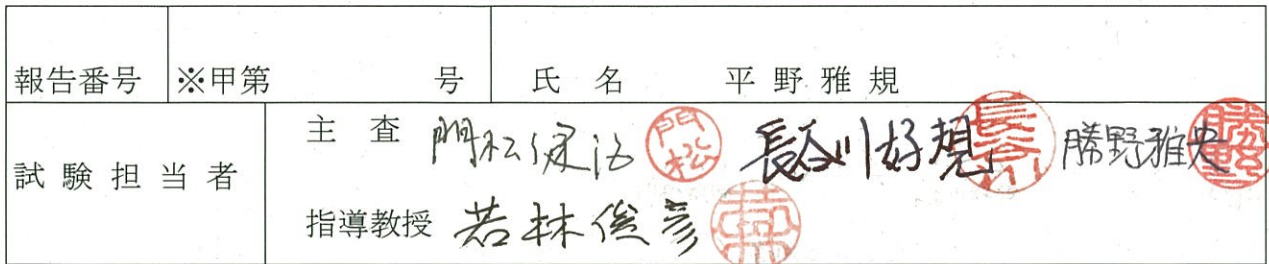 報告番号 ※甲第 号 氏 名 平 野 雅 規
試 験 担 当 者 主 査 門松健治 門松 長谷川好規 長谷川 勝野雅央 勝野
指導教授 若林俊彦